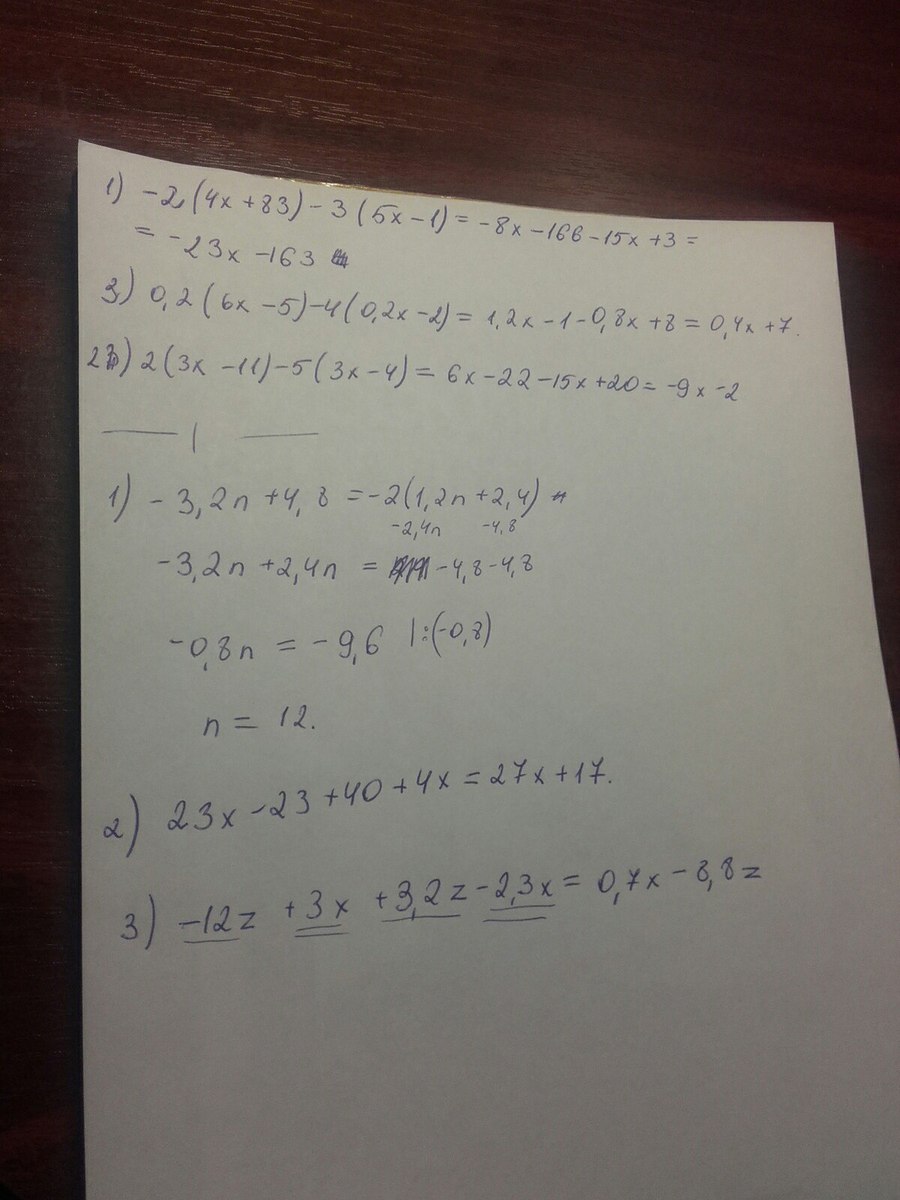 1) -2(4x+83)-3(5x-1)=-8x-166-15x+3=
=-23x-163
3) 0,2(6x-5)-4(0,2x-2)=1,2x-1-0,8x+8=0,4x+7.
2) 2(3x-11)-5(3x-4)=6x-22-15x+20=-9x-2
1) -3,2n+4,8=-2(1,2n+2,4)
-2,4n -4,8
-3,2n+2,4n = -4,8-4,8
-0,8n = -9,6 |:(-0,8)
n = 12.
2) 23x-23+40+4x=27x+17.
3) -12z+3x+3,2z-2,3x=0,7x-8,8z